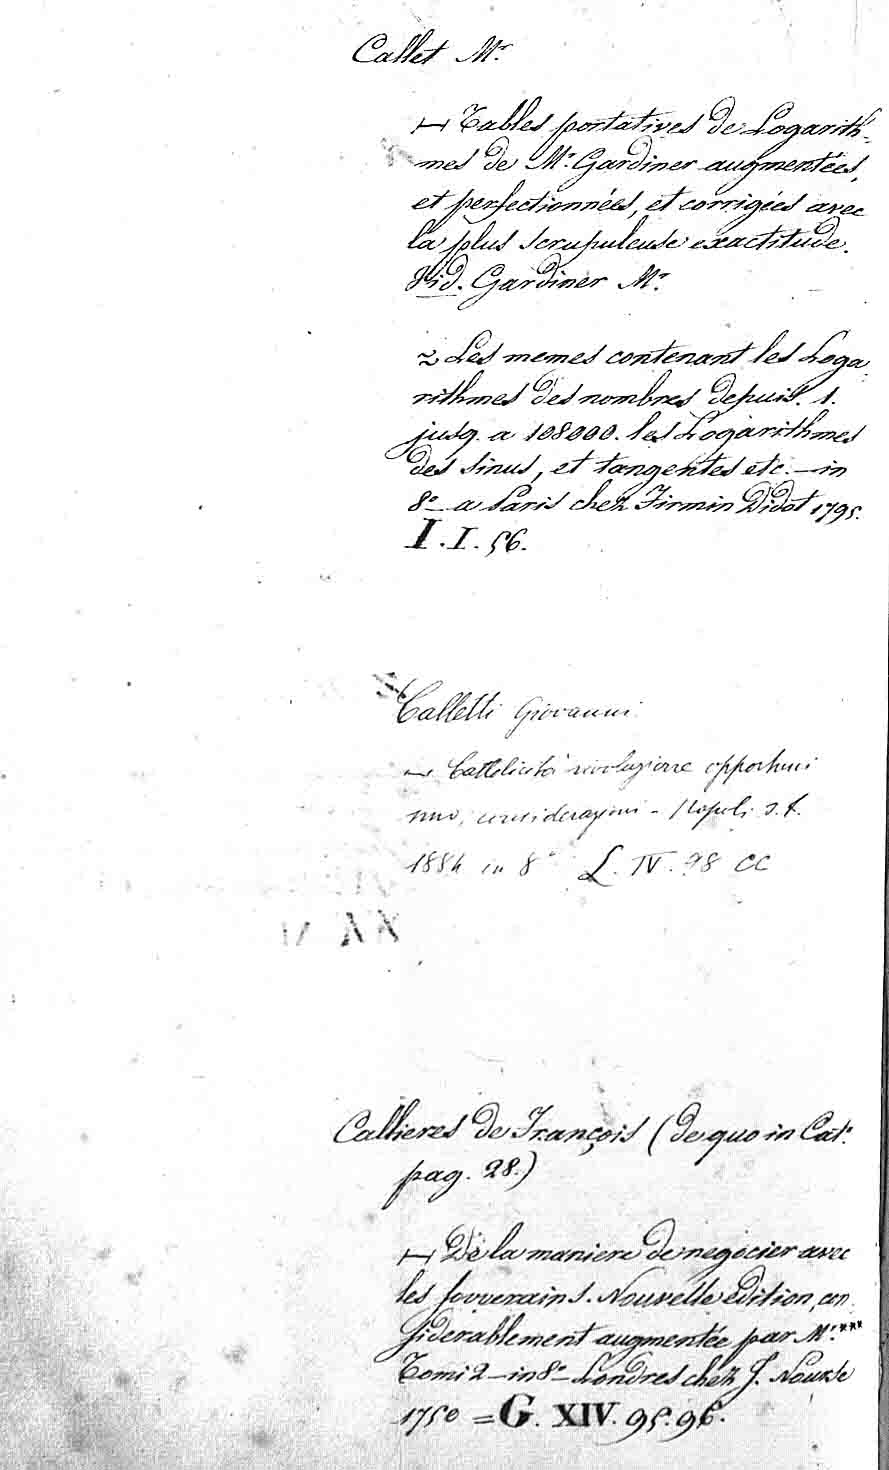 Callet Mr.
1 Tables portatives de Logarith-
mes de Mr. Gardiner augmentées,
et perfectionnées, et corrigées avec
la plus scrupuleuse exactitude.
Vid. Gardiner Mr.
2 Les memes contenant les Loga
rithmes des nombres depuis. 1.
jusq. a 108000. les Logarithmes
des sinus, et tangentes etc. — in
8o — a Paris chez Firmin Didot 1795.
I. I. 56.
Calletti Giovanni
— Cattolicità rivoluzione opportuni
smo, considerazioni - Napoli s.t.
1884 in 8o L. IV. 98 CC
Callieres de François (de quo in Cat.
pag. 28.)
1 De la maniere de negocier avec
les souverains. Nouvelle edition, con
siderablement augmentée par Mr. ***
Tomi 2 — in 8o — Londres chez J. Nourse
1750 = G. XIV. 95. 96.